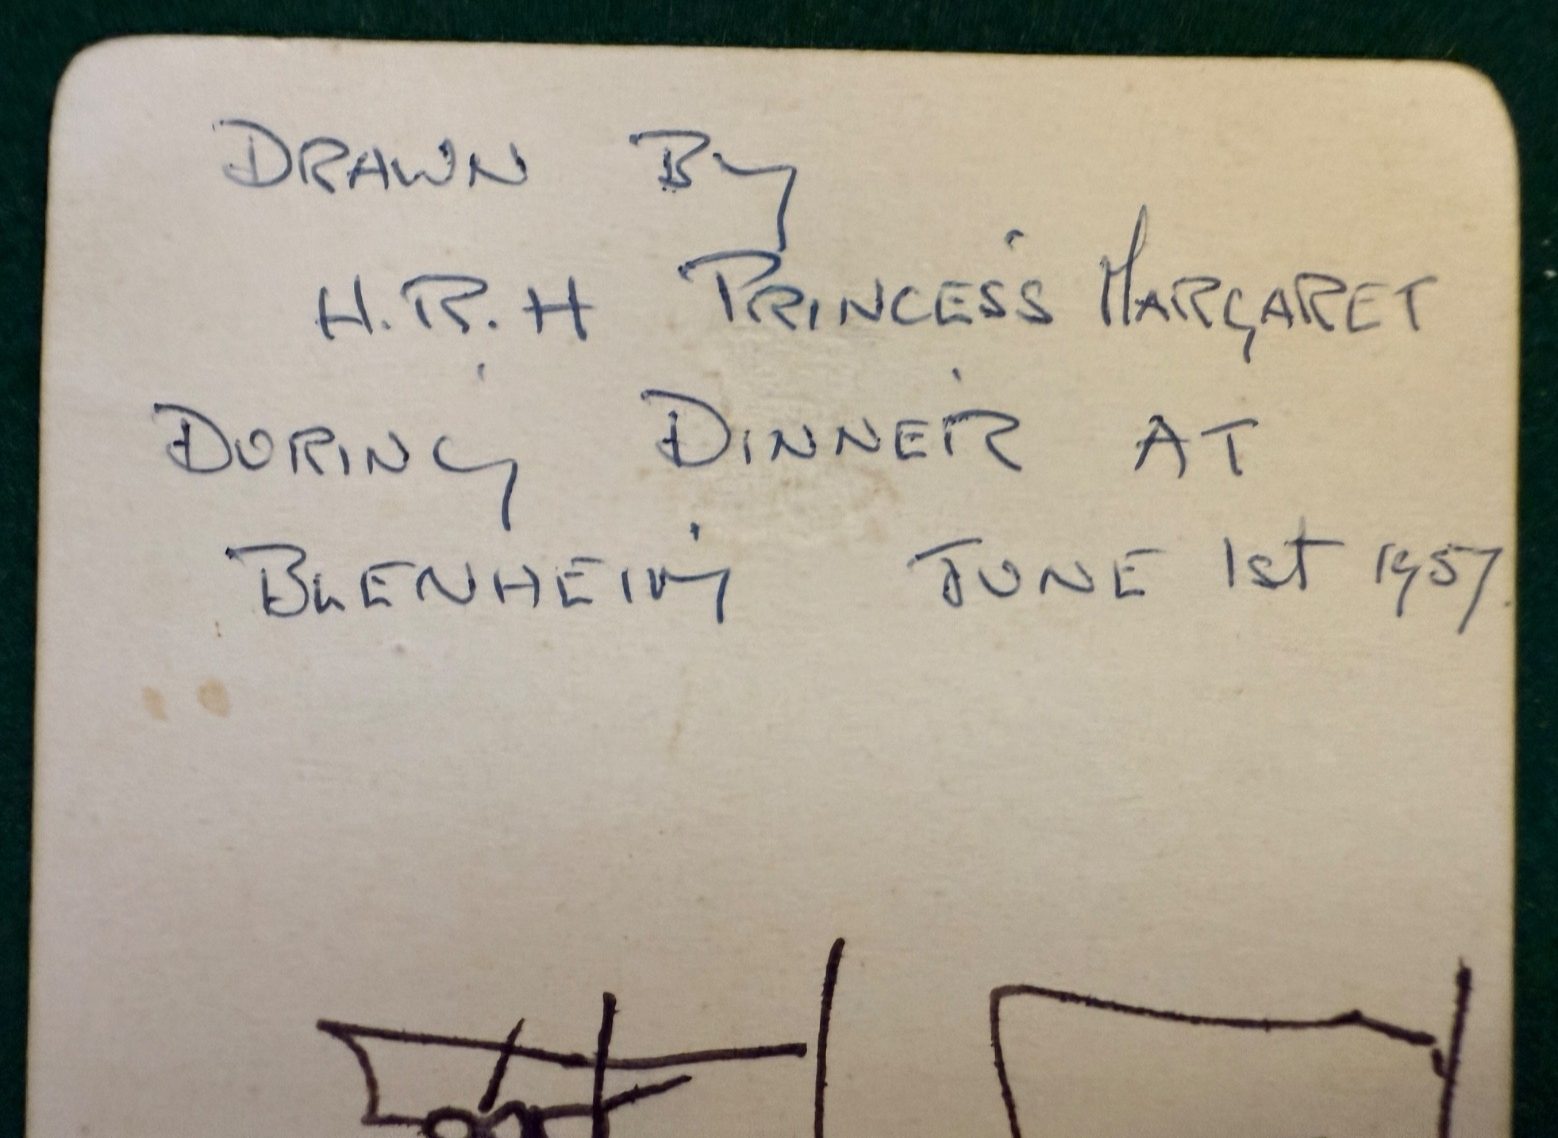 DRAWN By
H.R.H PRINCESS MARGARET
DURING DINNER AT
BLENHEIM JUNE 1st 1957.